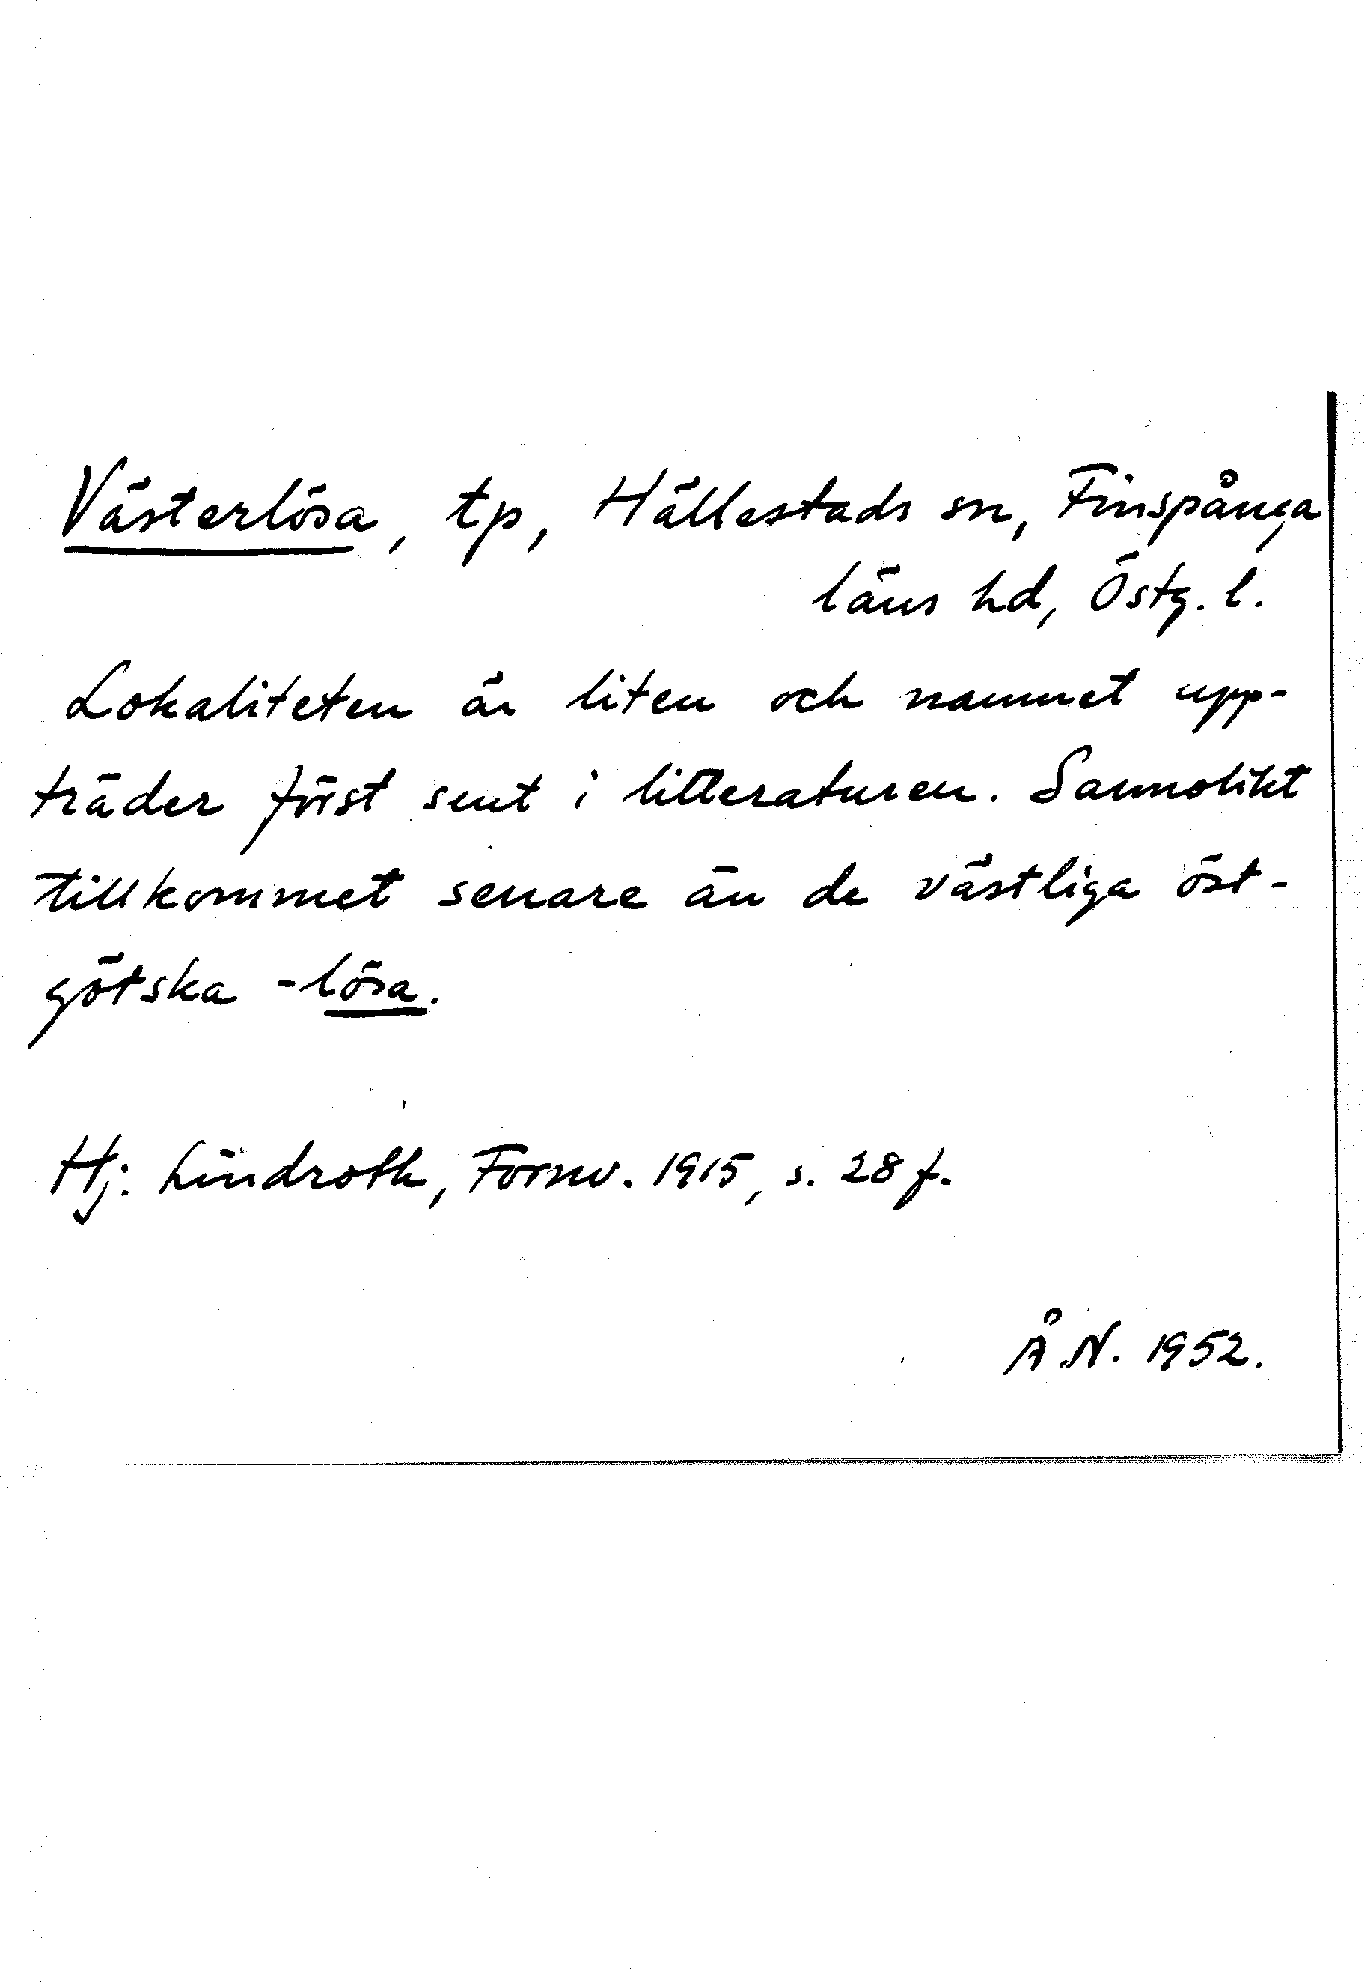 Västerlösa, tp, Hällestads sn, Finspånga
läns hd, Östg. l.
Lokaliteten är liten och namnet upp-
träder först sent i litteraturen. Sannolikt
tillkommet senare än de västliga öst-
götska -lösa.
Hj. Lindroth, Fornv. 1915, s. 28 f.
Å.N. 1952.